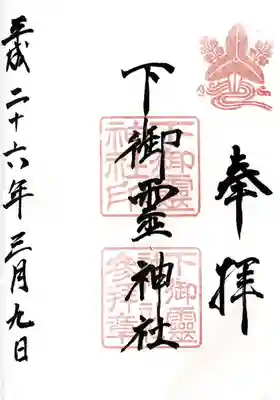 奉拝
下御霊神社
下御霊
神社印
下御霊
神社
参拝章
平成二十六年三月九日